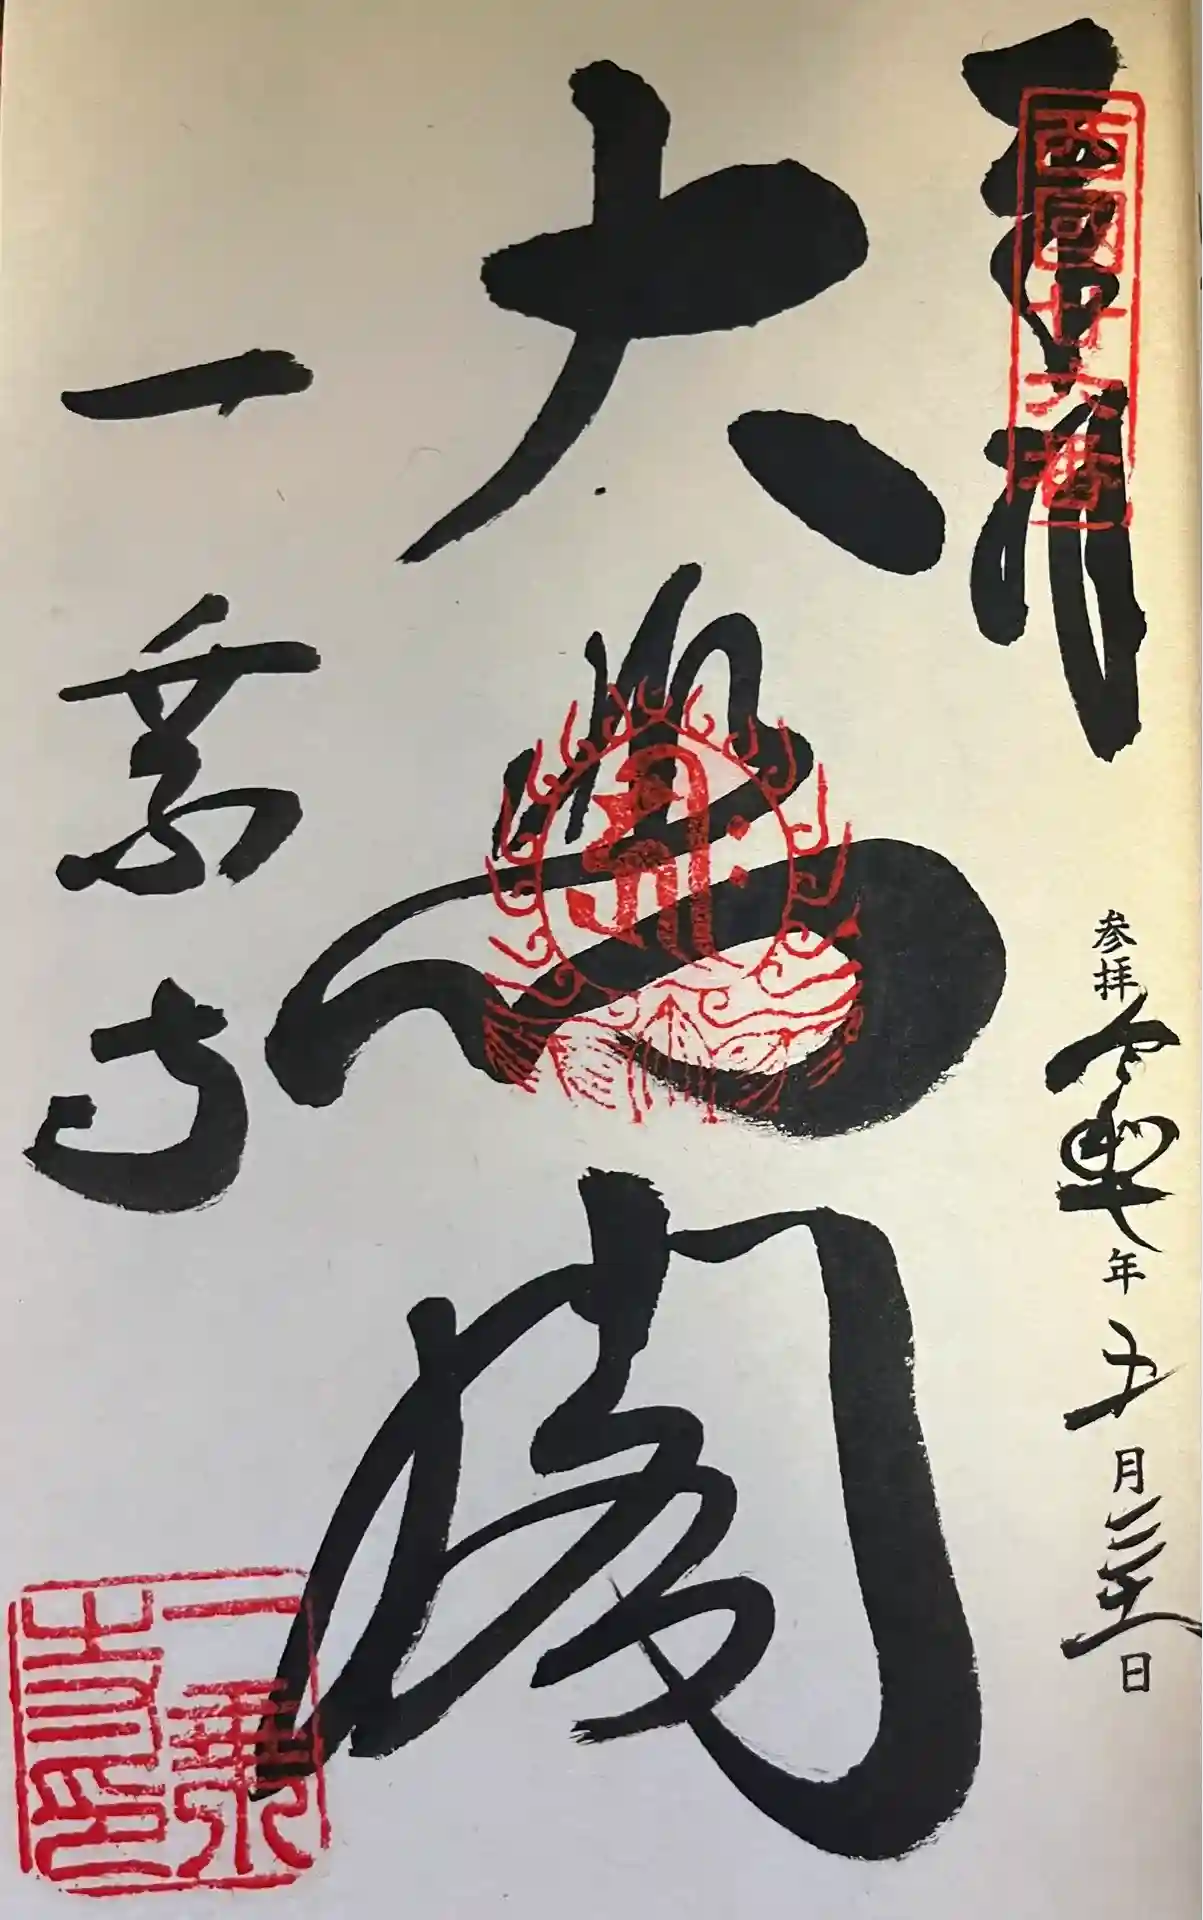 奉拝
西國廿六番
参拝 令和七年五月三十一日
大悲閣
一乗寺
一乗寺印